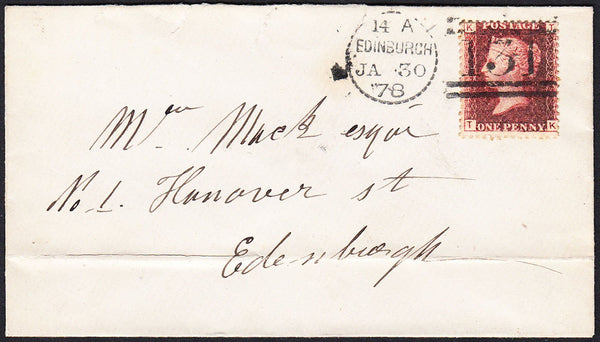 14 A
EDINBURGH
JA 30
78
131
K T
POSTAGE
T K
ONE PENNY
Wm Mack esqr
No 1. Hanover st
Edenburgh